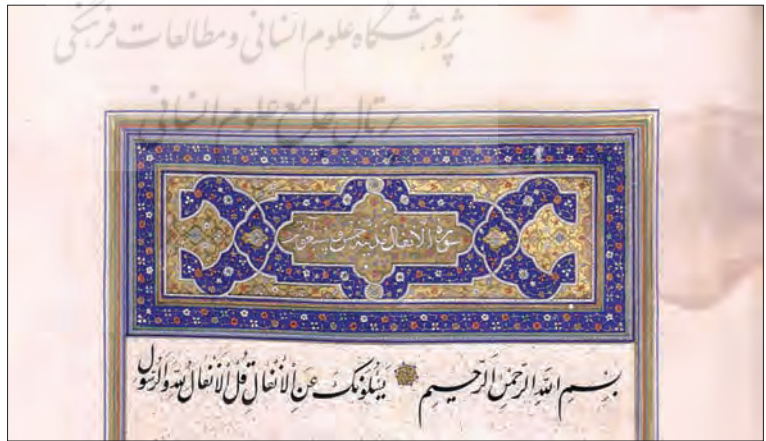 پژوهشگاه علوم انسانی و مطالعات فرهنگی
پرتال جامع علوم انسانی
سورة الأنفال مدنية خمس و سبعون آية
بِسمِ اللهِ الرَّحمٰنِ الرَّحيم يَسئَلونَكَ عَنِ الأَنفالِ قُلِ الأَنفالُ لِلّهِ وَالرَّسولِ